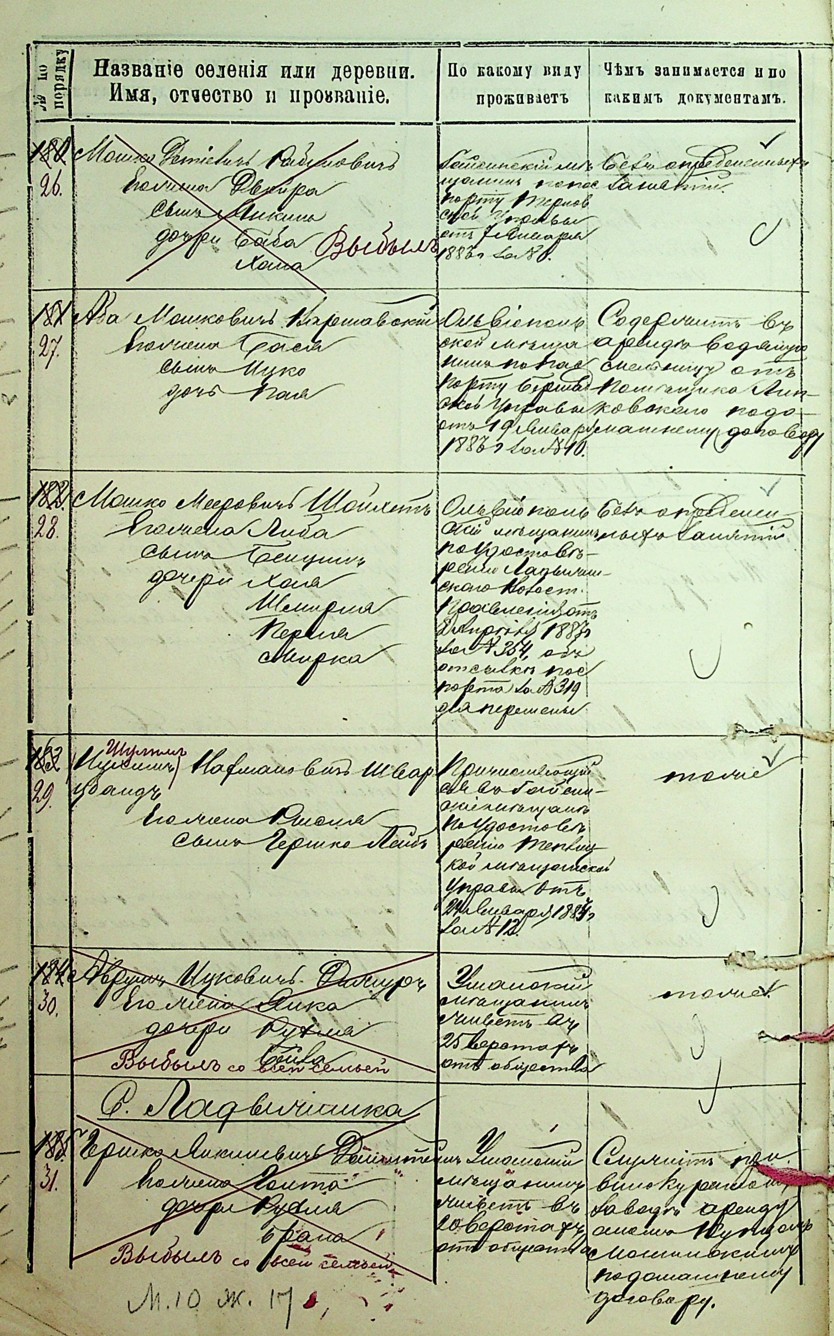 № по порядку
Названіе селенія или деревни.
Имя, отчество и прозваніе.
По какому виду
проживаетъ
Чѣмъ занимается и по
какимъ документамъ.
180
26.
Мошко
Рабиновичъ
жена Двойра
сынъ Янкель
дочери Баба
Хана
Выбылъ
Гайсинскій мѣ-
щанинъ по пас
порту Тернов
ской Управы
отъ 7 Января
1883 г за №
Безъ опредѣленныхъ
занятій.
181
27.
Аба Мошковичъ Варшавскій
жена Бася
сынъ Ицко
дочь Хая
Ольвіополь
ской мѣща
нинъ по пас
порту
ской Управы
отъ 19 Января
1883 г за № 10.
Содержитъ въ
арендѣ водяную
мельницу отъ
Помѣщика Лип-
ковского по до-
машнему договору
182
28.
Мошко Мееровичъ Шойхетъ
жена Либа
сынъ Бенціонъ
дочери Хая
Перля
Мирка
Ольвіополь
скій мѣщанинъ
по удостовѣ-
ренію Ладыжин-
скаго Волост.
Правленія отъ
Апрѣля 1883 г
за № 354, объ
отсылкѣ пас
порта за № 319
для перемены
Безъ опредѣлен-
ныхъ занятій
183
29.
Шулимъ
Нахмановичъ Швар
цбандъ
жена
сынъ Гершко Лейбъ
Причисляющій
ся въ Гайсин-
скіе мѣщане
по удостовѣ
ренію Теплиц
кой мѣщанской
Управы отъ
24 Января 1883 г
за № 12.
тоже
184
30.
Аврумъ Ицковичъ
жена
дочери Рухля
Бейла
Выбылъ со всей семьей
Уманскій
мѣщанинъ
живетъ въ
25 верстахъ
отъ общества
тоже
С. Ладыжинка
185
31.
Гершко Янкелевичъ
жена Голта
дочери Рухля
Брана
Выбылъ со всей семьей
Уманскій
мѣщанинъ
живетъ въ
20 верстахъ
отъ общества
Служитъ при
винокуренномъ
заводѣ аренду
емомъ Купцомъ
по домашнему
договору.
М. 10 Ж. 17